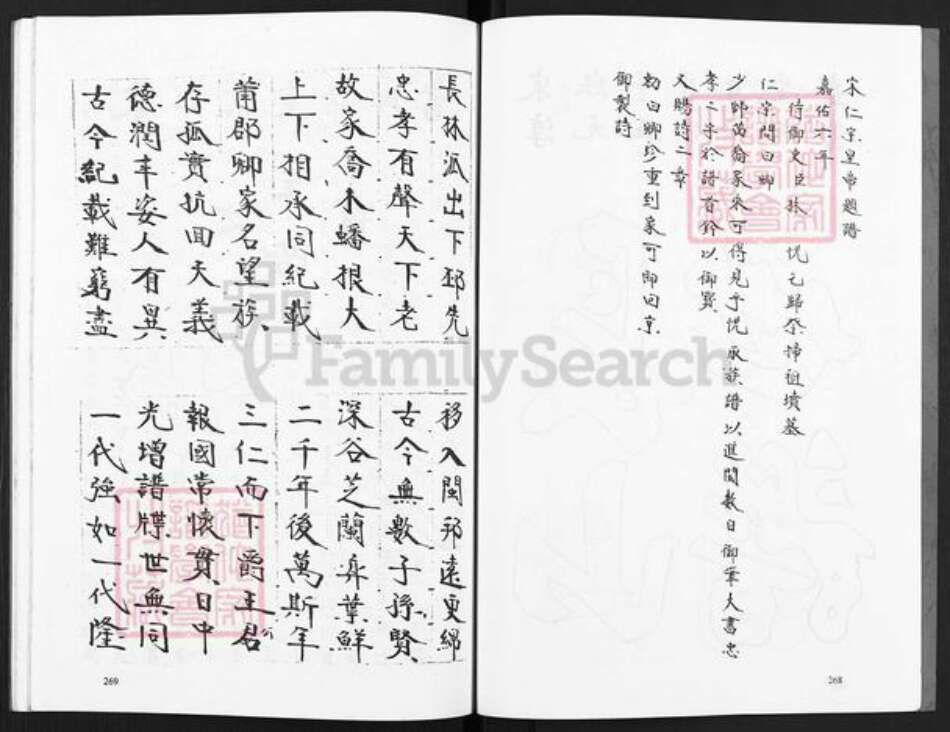 宋仁宗皇帝題譜
嘉佑六年
侍御史臣林 悦乞歸祭掃祖墳墓
仁宗問曰卿
少師萬裔家乘可得見乎悦承族譜以進閱数日御筆大書忠
孝二字於譜首鈐以御寶
又賜詩二章
勑曰卿珍重到家可即回京
御製詩
長林派出下邳先 移入閩邦遠更綿
忠孝有聲天下老 古今無數子孫賢
故家喬木蟠根大 深谷芝蘭弈葉鮮
上下相承同紀載 二千年後萬斯年
莆郡卿家名望族 三仁而下爵主君
存孤實抗回天義 報國常懷貫日中
德潤丰姿人有異 光增譜牒世無同
古今紀載難窮盡 一代強如一代隆
FamilySearch
269
268